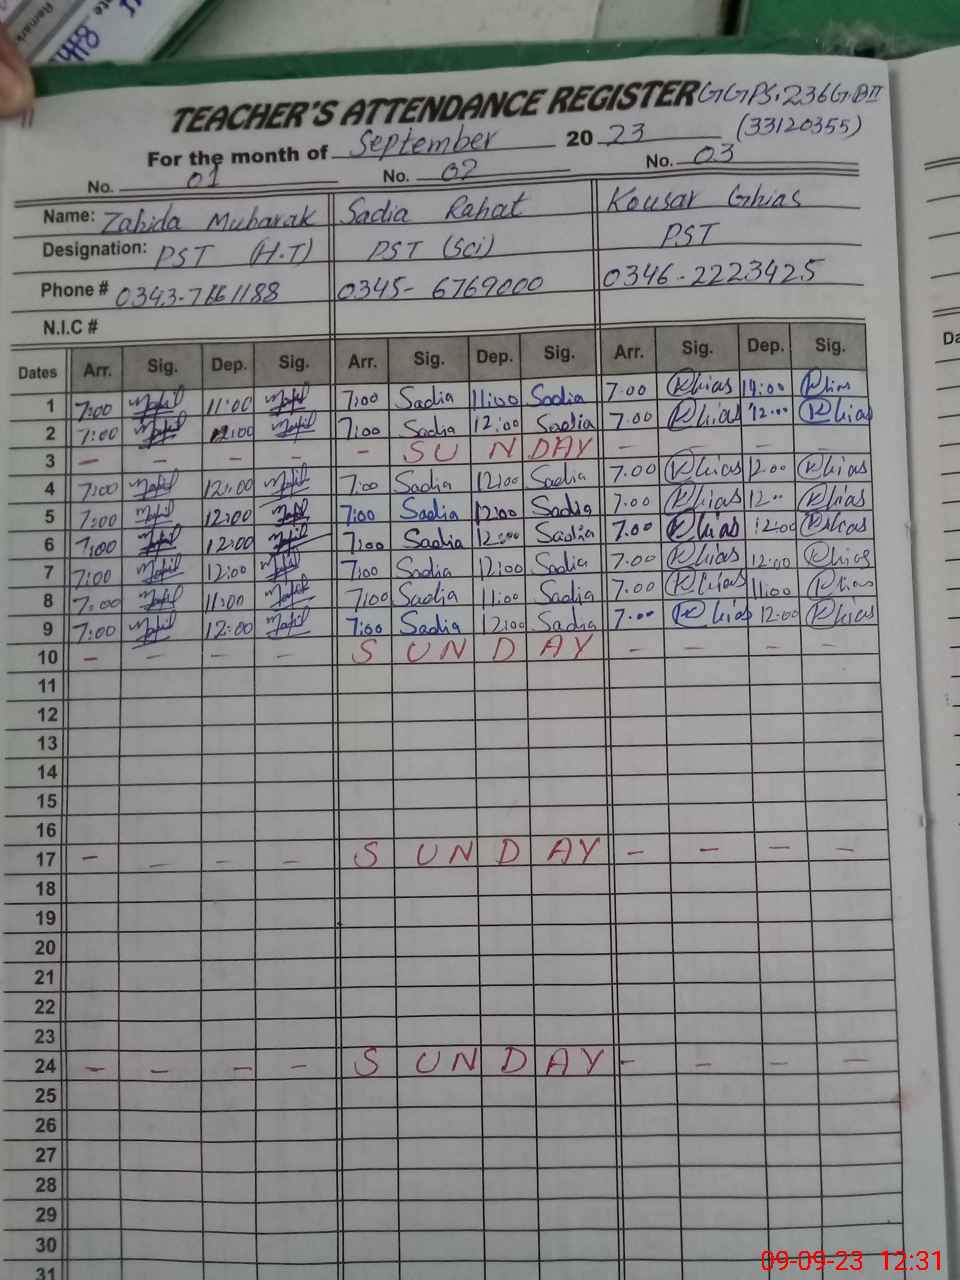 Remark
TEACHER'S ATTENDANCE REGISTER GGPS.236GBII
For the month of September 2023 (33120355)
No. 01 No. 02 No. 03
Name: Zahida Mubarak Sadia Rahat Kousar Ghias
Designation: PST (H.T) PST (Sci) PST
Phone # 0345-6769000 0346-2223425
N.I.C #
Dates Arr. Sig. Dep. Sig. Arr. Sig. Dep. Sig. Arr. Sig. Dep. Sig.
1 7:00 11:00 7:00 Sadia 11:00 Sadia 7.00 Khias Khias
2 7:00 12:00 7:00 Sadia 12:00 Sadia 7.00 Khias 12.00 Khias
3 - - - - - SUNDAY - - - -
4 7:00 12:00 7:00 Sadia 12:00 Sadia 7.00 Khias 12.00 Khias
5 7:00 12:00 7:00 Sadia 12:00 Sadia 7.00 Khias 12.00 Khias
6 7:00 12:00 7:00 Sadia 12:00 Sadia 7.00 Khias 12:00 Khias
7 7:00 12:00 7:00 Sadia 12:00 Sadia 7.00 Khias 12:00 Khias
8 7:00 11:00 7:00 Sadia 11:00 Sadia 7.00 Khias 11:00 Khias
9 7:00 12:00 7:00 Sadia 12:00 Sadia 7.00 Khias 12:00 Khias
10 - - - - SUNDAY - - - -
11
12
13
14
15
16
17 - - - - SUNDAY - - - -
18
19
20
21
22
23
24 - - - - SUNDAY - - - -
25
26
27
28
29
30
31
09-09-23 12:31